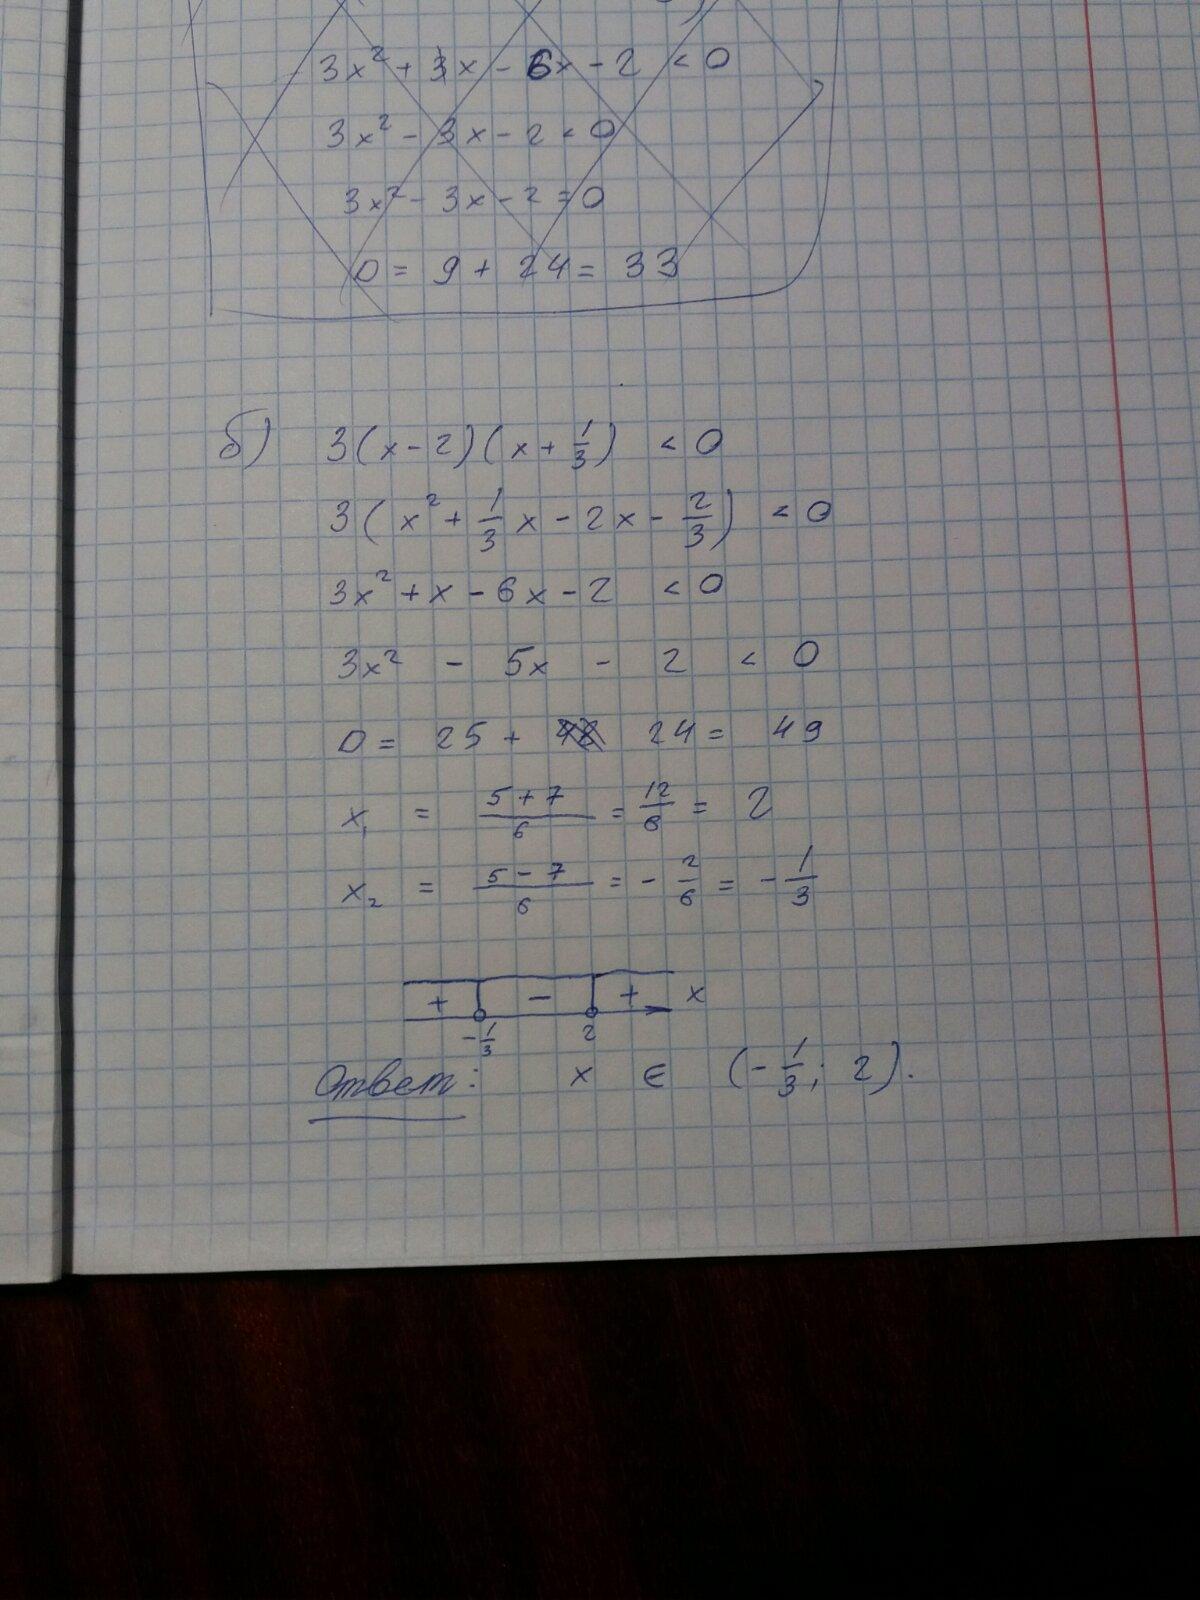 3x² + 3x - 6x - 2 < 0
3x² - 3x - 2 < 0
3x² - 3x - 2 = 0
D = 9 + 24 = 33
б) 3(x - 2)(x + 1/3) < 0
3(x² + 1/3 x - 2x - 2/3) < 0
3x² + x - 6x - 2 < 0
3x² - 5x - 2 < 0
D = 25 + 24 = 49
x₁ = (5 + 7)/6 = 12/6 = 2
x₂ = (5 - 7)/6 = - 2/6 = - 1/3
+ - + x
-1/3 2
Ответ: x ∈ (-1/3; 2).